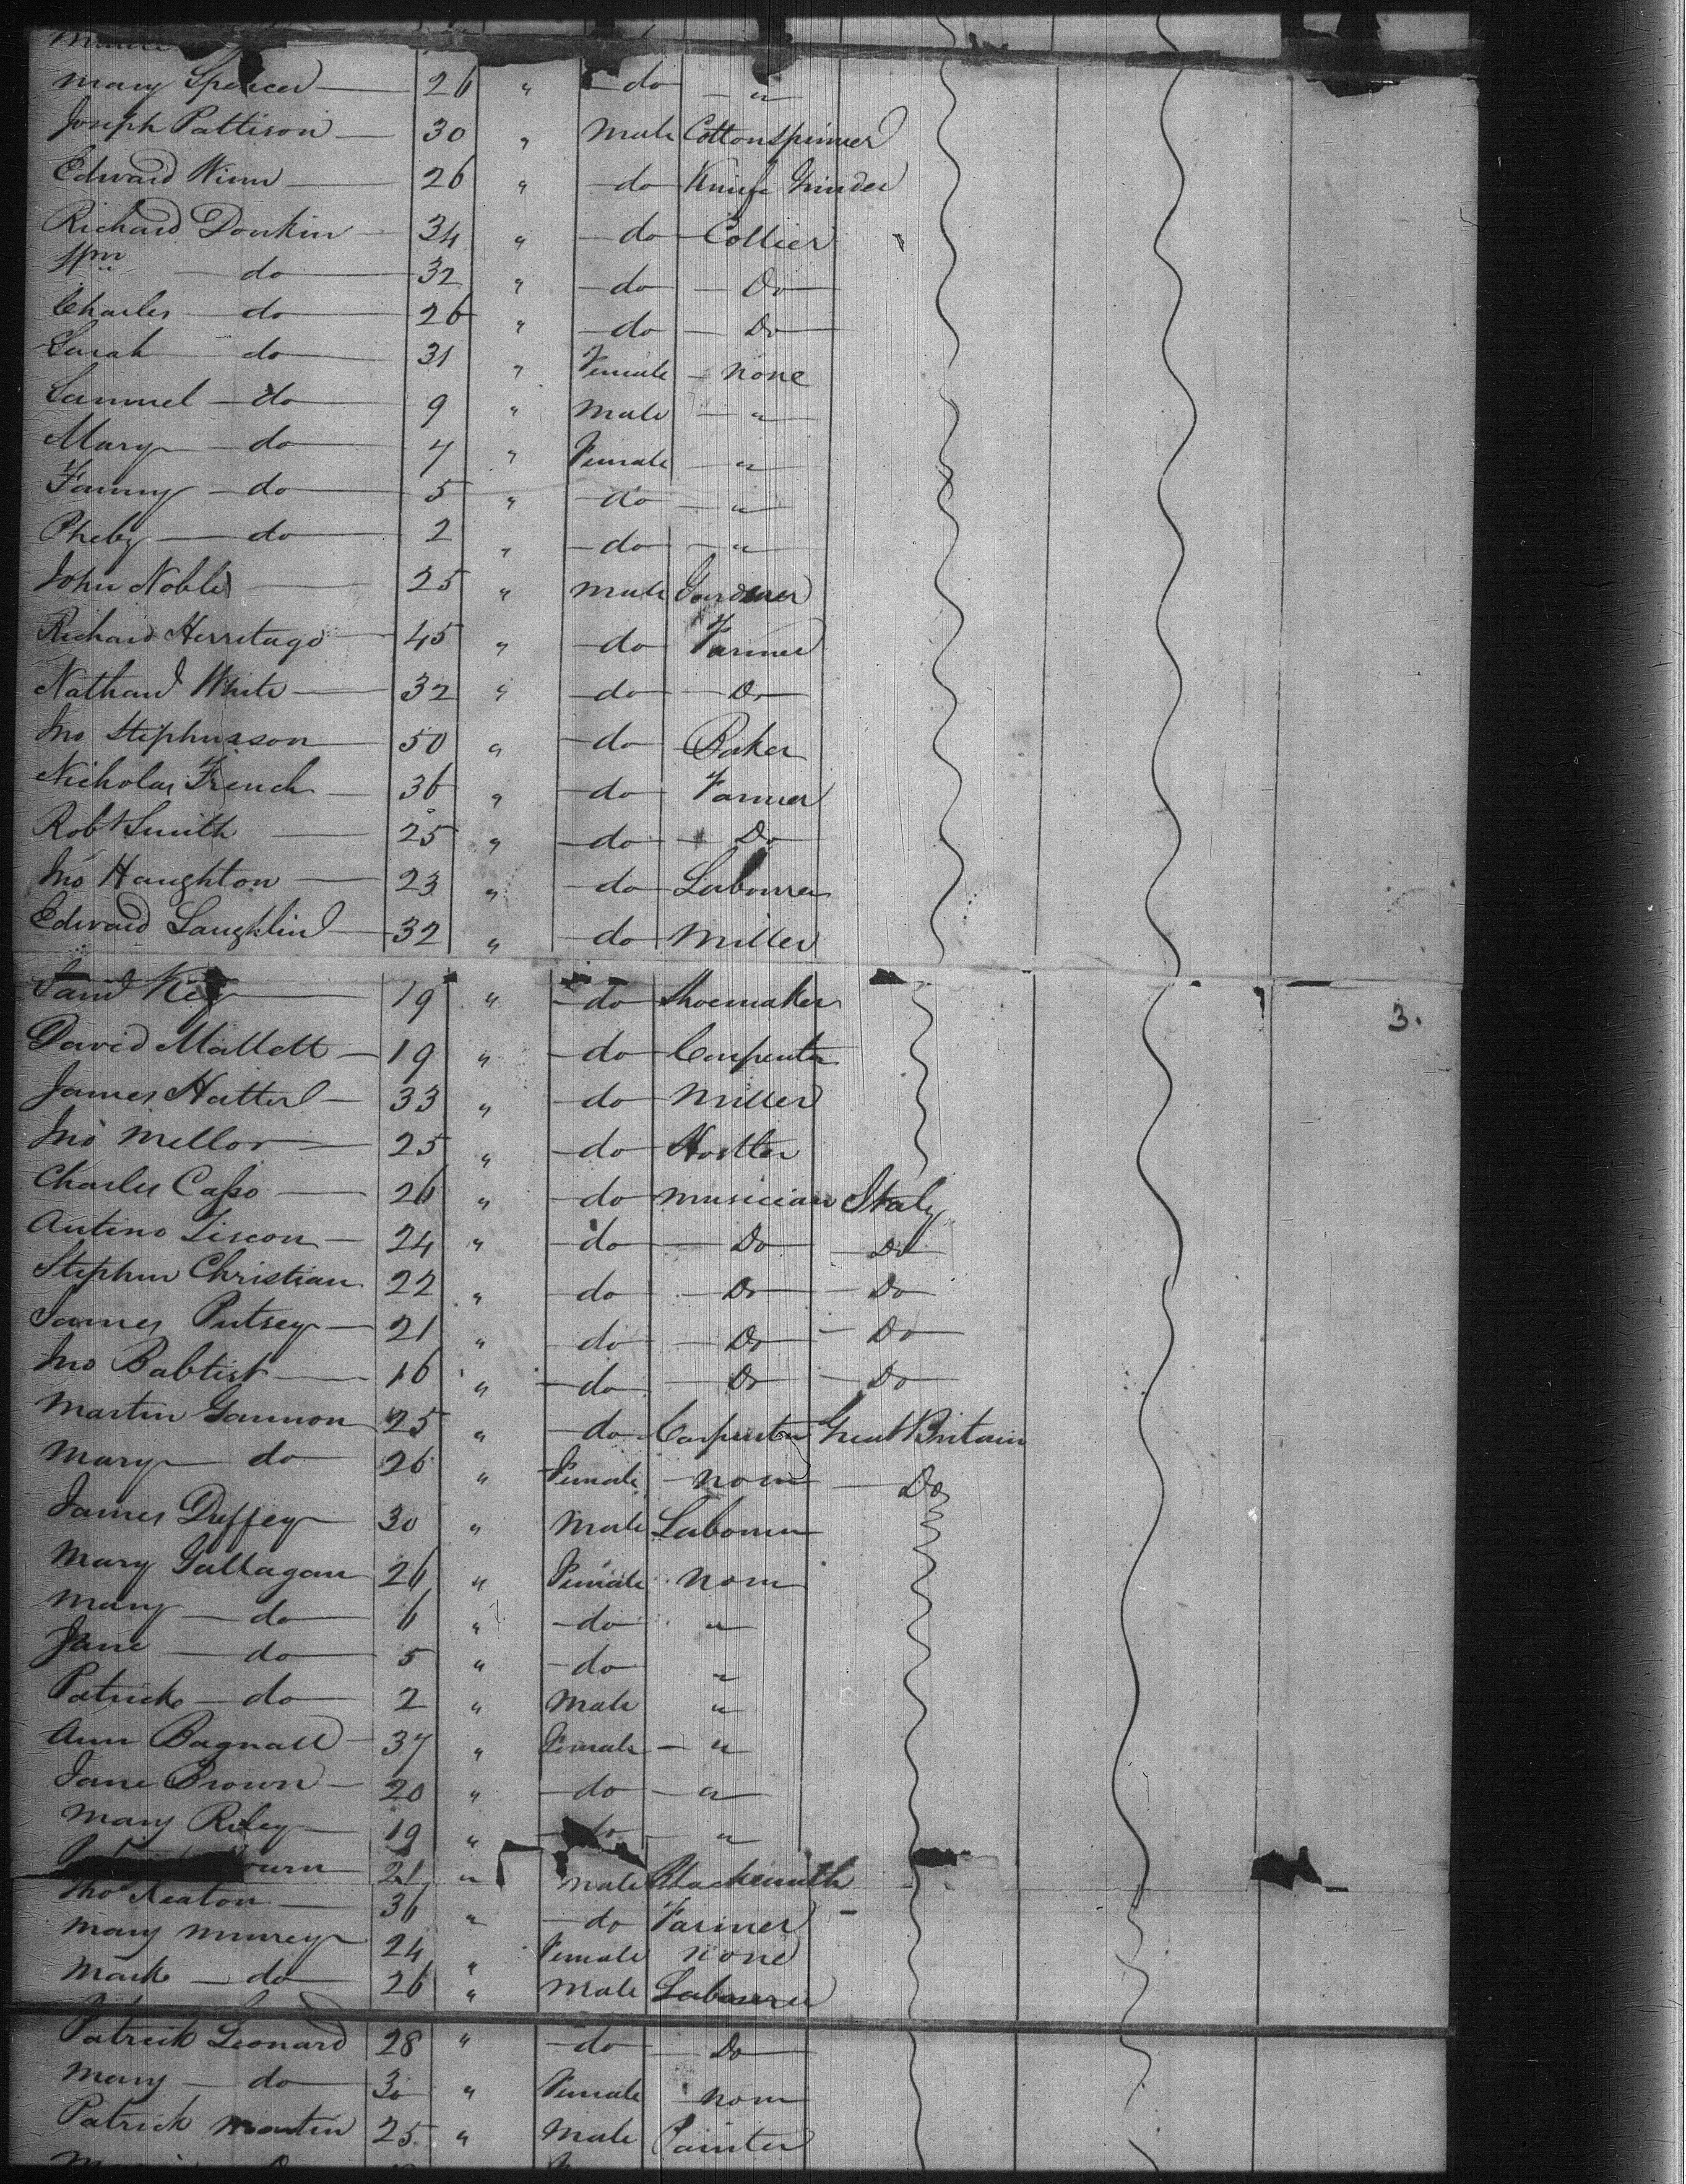 Mary Spencer 26 " do "
Joseph Pattison 30 " male Cottonspinner
Edward Winn 26 " do Knife Grinder
Richard Donkin 34 " do Collier
Wm do 32 " do Do
Charles do 26 " do Do
Sarah do 31 " Female none
Samuel do 9 " male "
Mary do 7 " Female "
Fanny do 5 " do "
Pheby do 2 " do "
John Noble 25 " male Gardener
Richard Herritage 45 " do Farmer
Nathan White 32 " do Do
Jno Stephenson 50 " do Baker
Nicholas French 36 " do Farmer
Robt Smith 25 " do Do
Jno Haughton 23 " do Labourer
Edward Laughlin 32 " do Miller
19 " do Shoemaker
3.
David Mallett 19 " do Carpenter
James Hatter 33 " do Miller
Jno Mellor 25 " do Hostler
Charles Casso 26 " do musician Italy
Antino Liscon 24 " do Do Do
Stephen Christian 22 " do Do Do
James Putsey 21 " do Do Do
Jno Babtist 16 " do Do Do
Martin Gannon 25 " do Carpenter Great Britain
Mary do 26 " Female none Do
James Duffey 30 " Male Labourer
Mary Gallagan 26 " Female none
Mary do 6 " do "
Jane do 5 " do "
Patrick do 2 " Male "
Ann Bagnall 37 " Female "
Jane Brown 20 " do "
Mary Riley 19 " do "
ourn 21 " male Blacksmith
Tho Keaton 36 " do Farmer
Mary Murey 24 " Female none
Mark do 26 " Male Labourer
Patrick Leonard 28 " do Do
Mary do 30 " Female none
Patrick Martin 25 " Male Painter